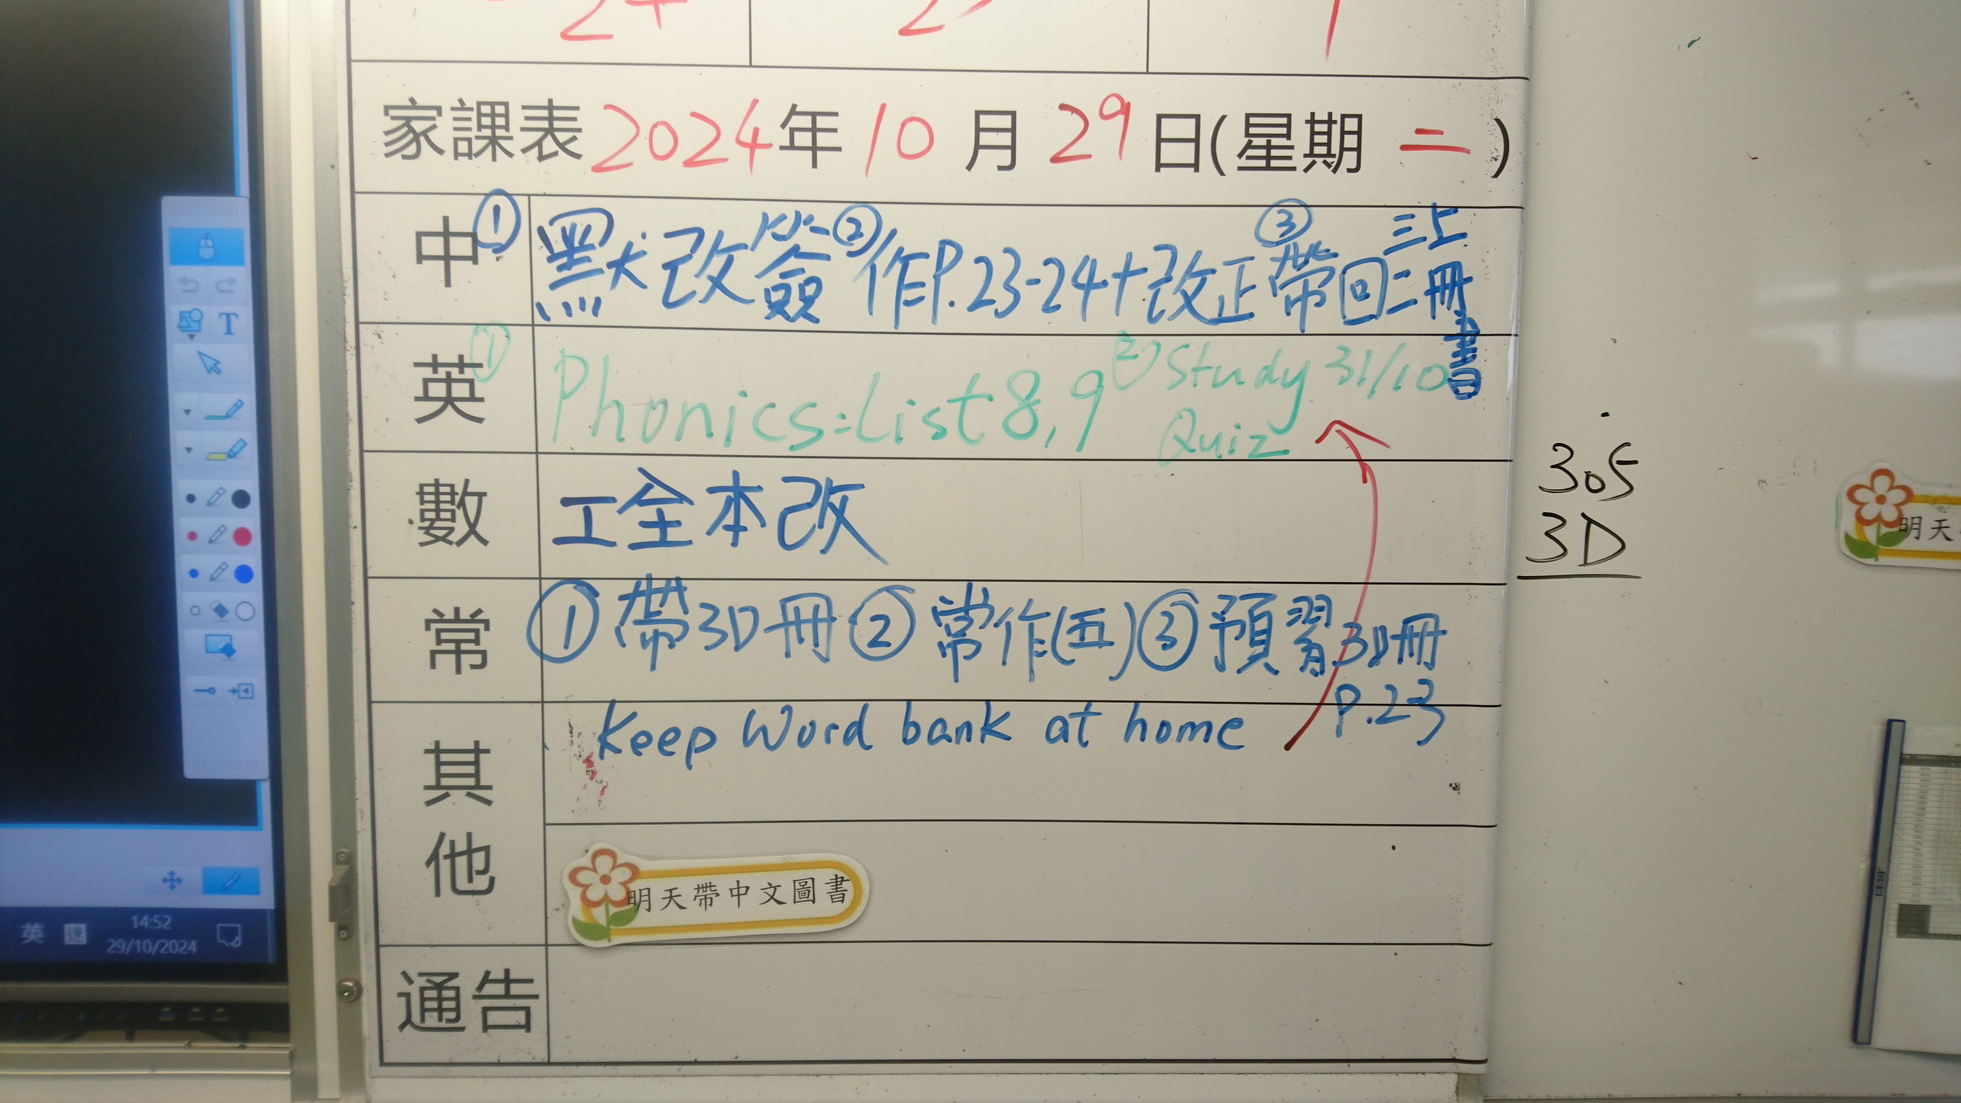 家課表 2024年 10 月 29 日(星期 二 )
中 ① 默改簽 ② 作P.23-24+改正 ③ 帶回三上二冊書
英 ① Phonics:List 8,9 ② Study 31/10
Quiz
數 工全本改
常 ① 帶3D冊 ② 常作(五) ③ 預習3D冊
P.23
其他 Keep Word bank at home
明天帶中文圖書
通告
305
3D
明天
T
英 速
14:52
29/10/2024